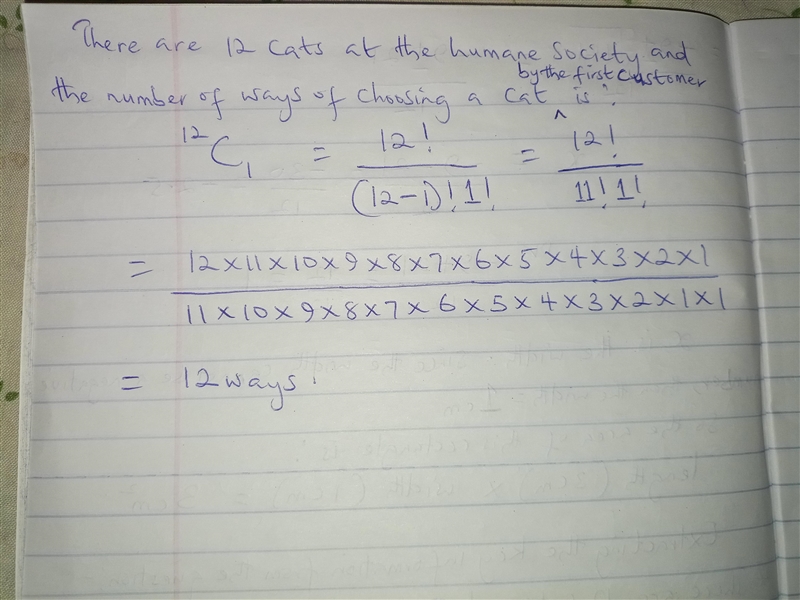 There are 12 cats at the humane society and
the number of ways of choosing a cat ^ by the first customer is:
¹²C₁ = 12! / (12-1)! 1! = 12! / 11! 1!
= 12×11×10×9×8×7×6×5×4×3×2×1 / 11×10×9×8×7×6×5×4×3×2×1×1
= 12 ways.